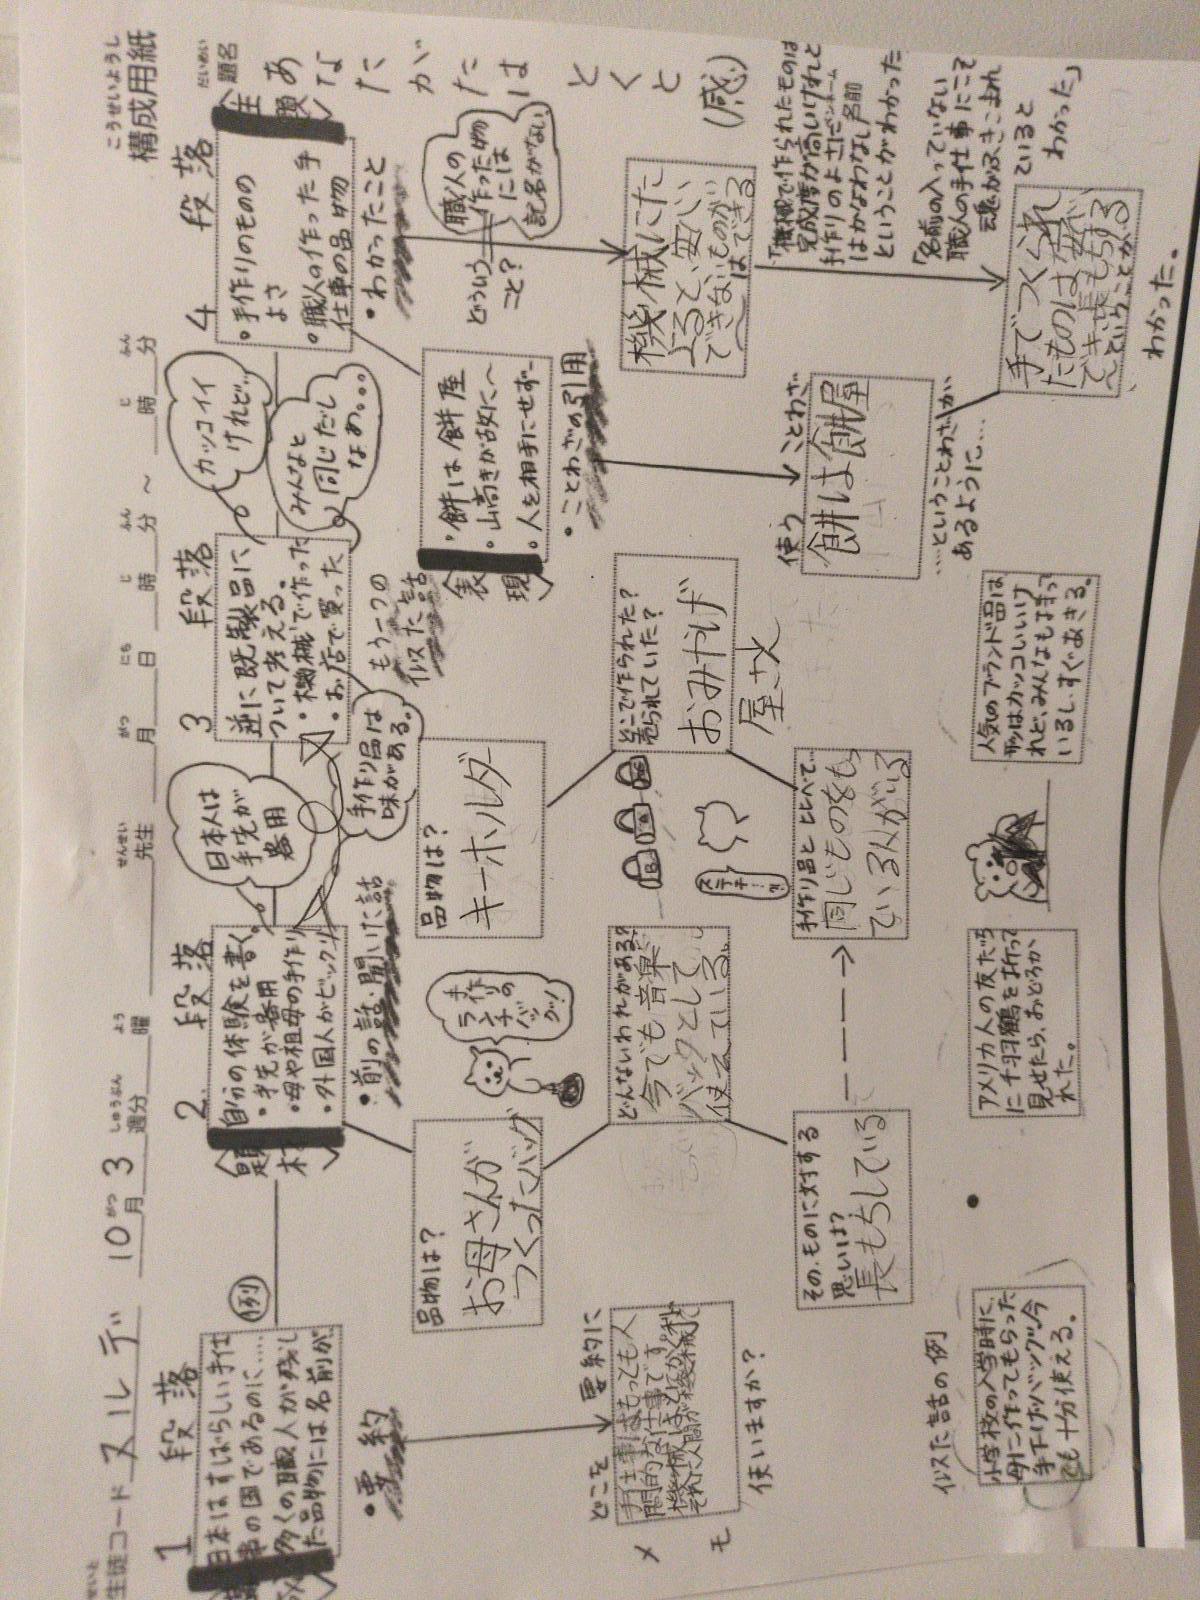 こうせいようし
構成用紙
せいと
生徒コード ヌルデ
10月3週分
がつ
しゅうぶん
よう
曜
せんせい
先生
がつ
月
にち
日
じ
時
ふん
分
～
じ
時
ふん
分
だいめい
題名
あなたがたはとくと
(感)
1段落
日本はすばらしい手仕
事の国であるのに……
多くの職人が残し
た品物には名前が
例
・要約
どこを
要約に
手仕事はもっとも人
間的な仕事です。
使いますか?
メモ
似た話の例
小学校の入学時に、
母に作ってもらった
手下げバッグ、今
でも十分使える。
2段落
題材
自分の体験を書く。
・手先が器用
・母や祖母の手作り
・外国人がビックリ
日本人は
手先が
器用
・前の話・聞いた話
品物は?
お母さんが
つくったバッグ
手作りの
ランチ
バッグ!
どんないわれがある?
今でも音楽
バックとして
使えている。
その、ものに対する
思いは?
長もちしている
アメリカ人の友だち
に千羽鶴を折って
見せたら、おどろか
れた。
3段落
逆に既製品に
ついて考える。
・機械で作った
・お店で買った
カッコイイ
けれど…
みんなと
同じだし
なぁ…
手作り品は
味がある。
もう一つの
似た話
品物は?
キーホルダー
どこで作られた?
売られていた?
おみやげ
屋さん
ステキ…
手作り品と比べて…
同じものをも
ている人がいる
人気のブランド品は
形はカッコいいけ
れど、みんなもまって
いるし、すぐあきる。
4段落
主題
・手作りのもの
よさ
・職人の作った手
仕事の品物
・わかったこと
職人の
作った物
には
記名がない
どういう
こと?
表現
・餅は餅屋
・山高きが故に～
・人を相手にせず～
・ことわざの引用
機械にた
よると、安い、
できないものが
はできる
「機械で作られたものは
完成度が高いけれど
手作りのよさに
はかなわない
ということがわかった
「名前の入っていない
職人の手仕事にこそ
魂がふきこまれ
ていると
わかった」
使う
ことわざ
餅は餅屋
……ということわざが
あるように……
手でつくられ
たものは安心
でき長もちする
ということが
わかった。